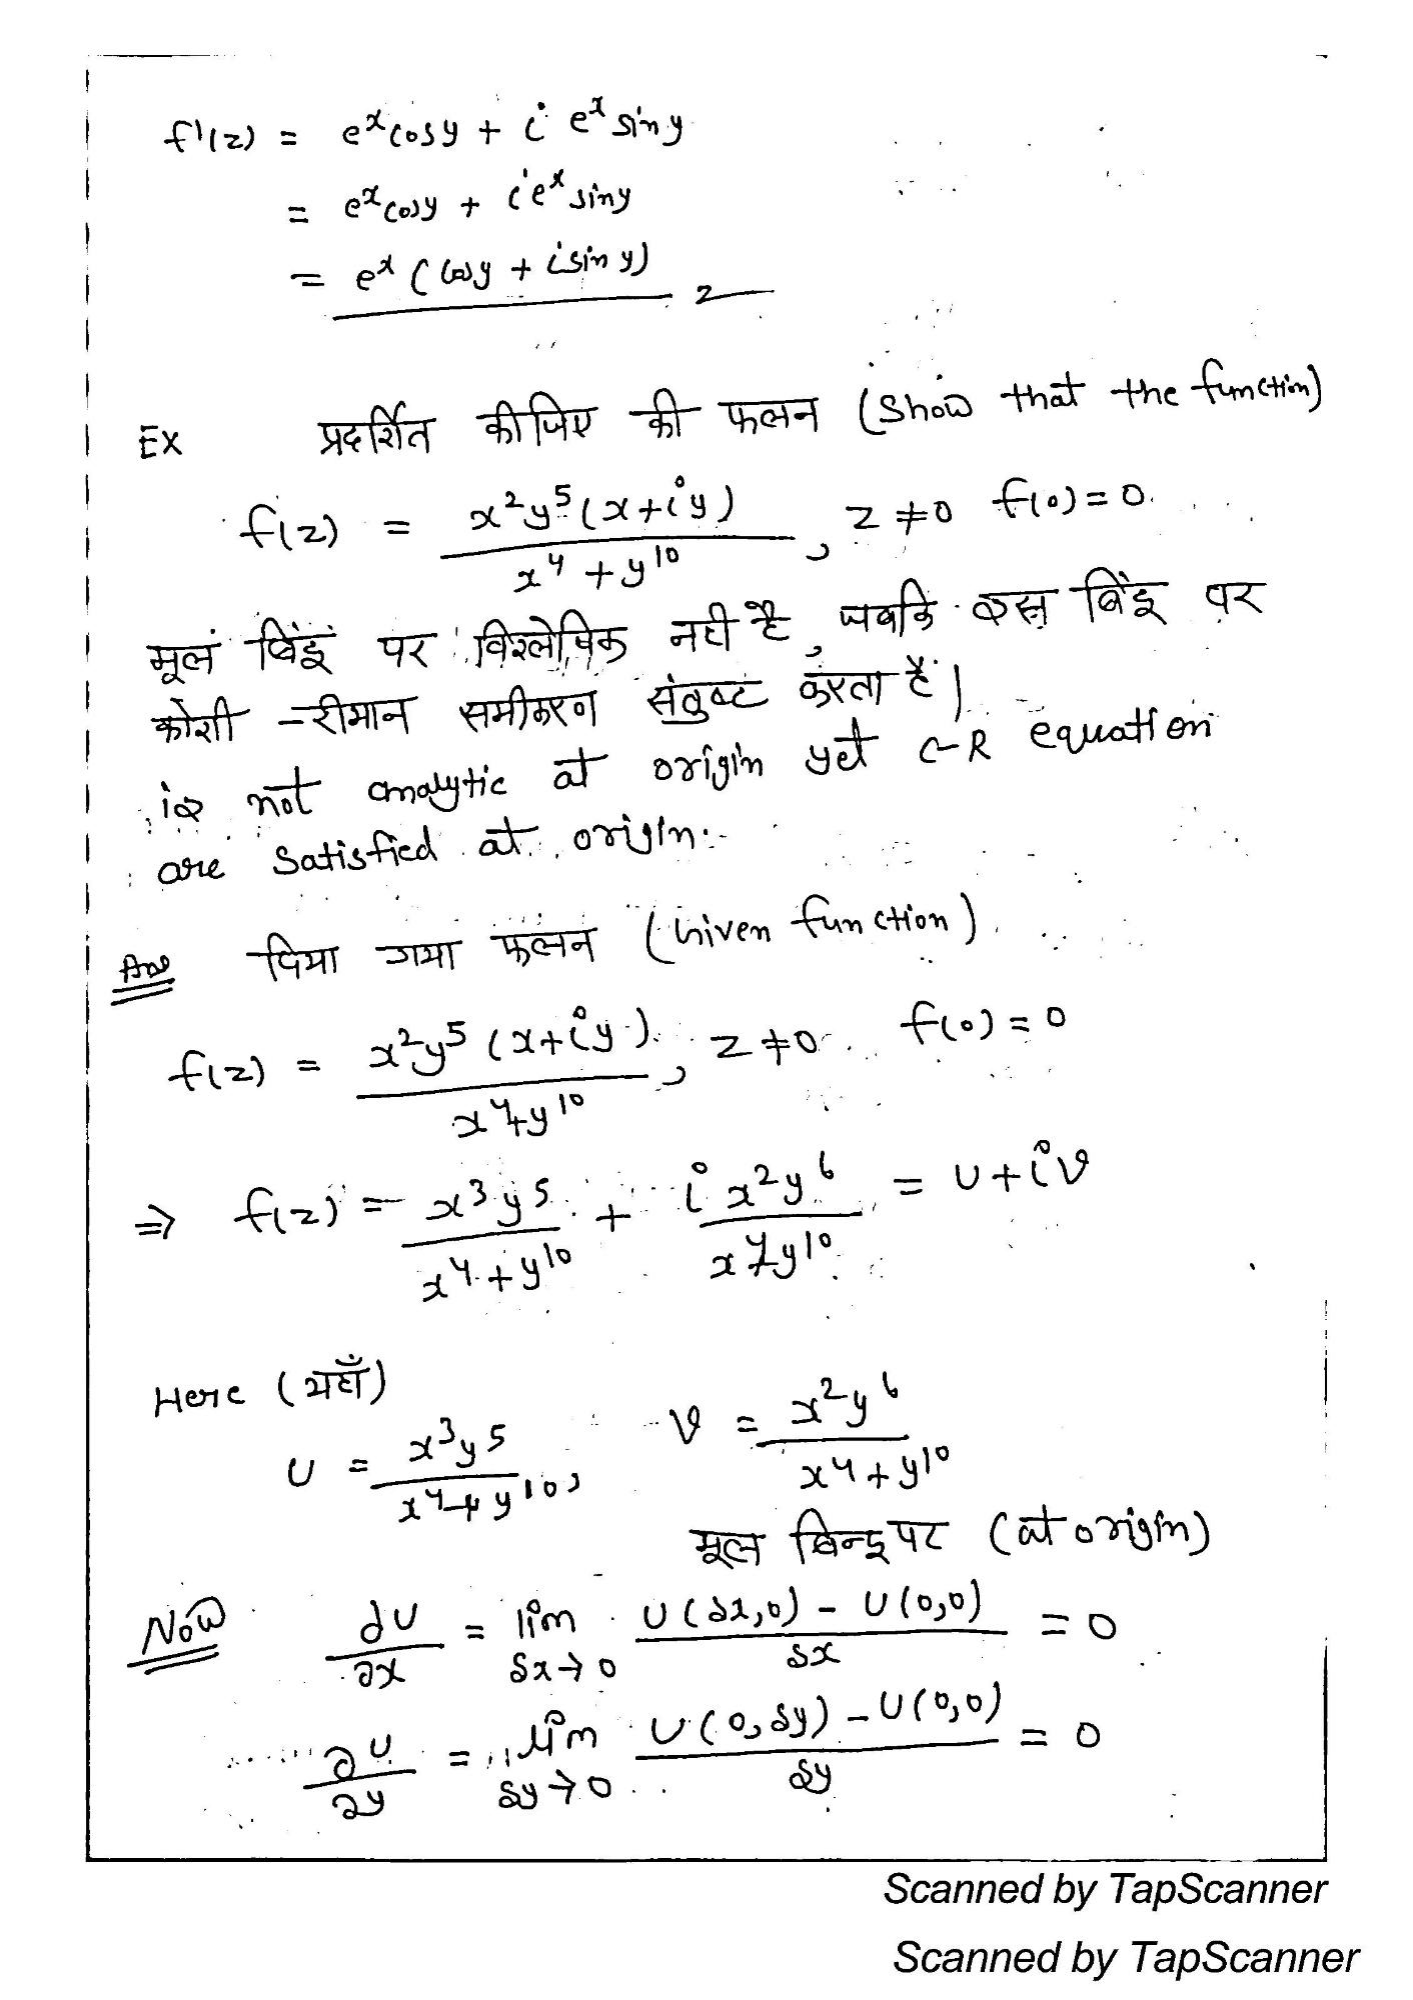 f'(z) = e^x cosy + i e^x siny
= e^x cosy + ie^x siny
= e^x (cosy + isiny)
Ex प्रदर्शित कीजिए की फलन (Show that the function)
f(z) = x²y⁵(x+iy) / x⁴+y¹⁰, z ≠ 0 f(0) = 0.
मूलं बिंइं पर विश्लेषिक नही है, जबकि इस बिंइ पर
कोशी –रीमान समीकरण संतुष्ट करता है।
is not analytic at origin yet C-R equation
are satisfied at origin.
Ans दिया गया फलन (Given function)
f(z) = x²y⁵(x+iy) / x⁴+y¹⁰, z ≠ 0 f(0) = 0
⇒ f(z) = x³y⁵ / x⁴+y¹⁰ + i x²y⁶ / x⁴+y¹⁰ = U+iV
Here (यहाँ)
U = x³y⁵ / x⁴+y¹⁰, V = x²y⁶ / x⁴+y¹⁰
मूल बिन्दु पर (at origin)
Now ∂U/∂x = lim δx→0 U(δx,0) – U(0,0) / δx = 0
∂U/∂y = lim δy→0 U(0,δy) – U(0,0) / δy = 0
Scanned by TapScanner
Scanned by TapScanner